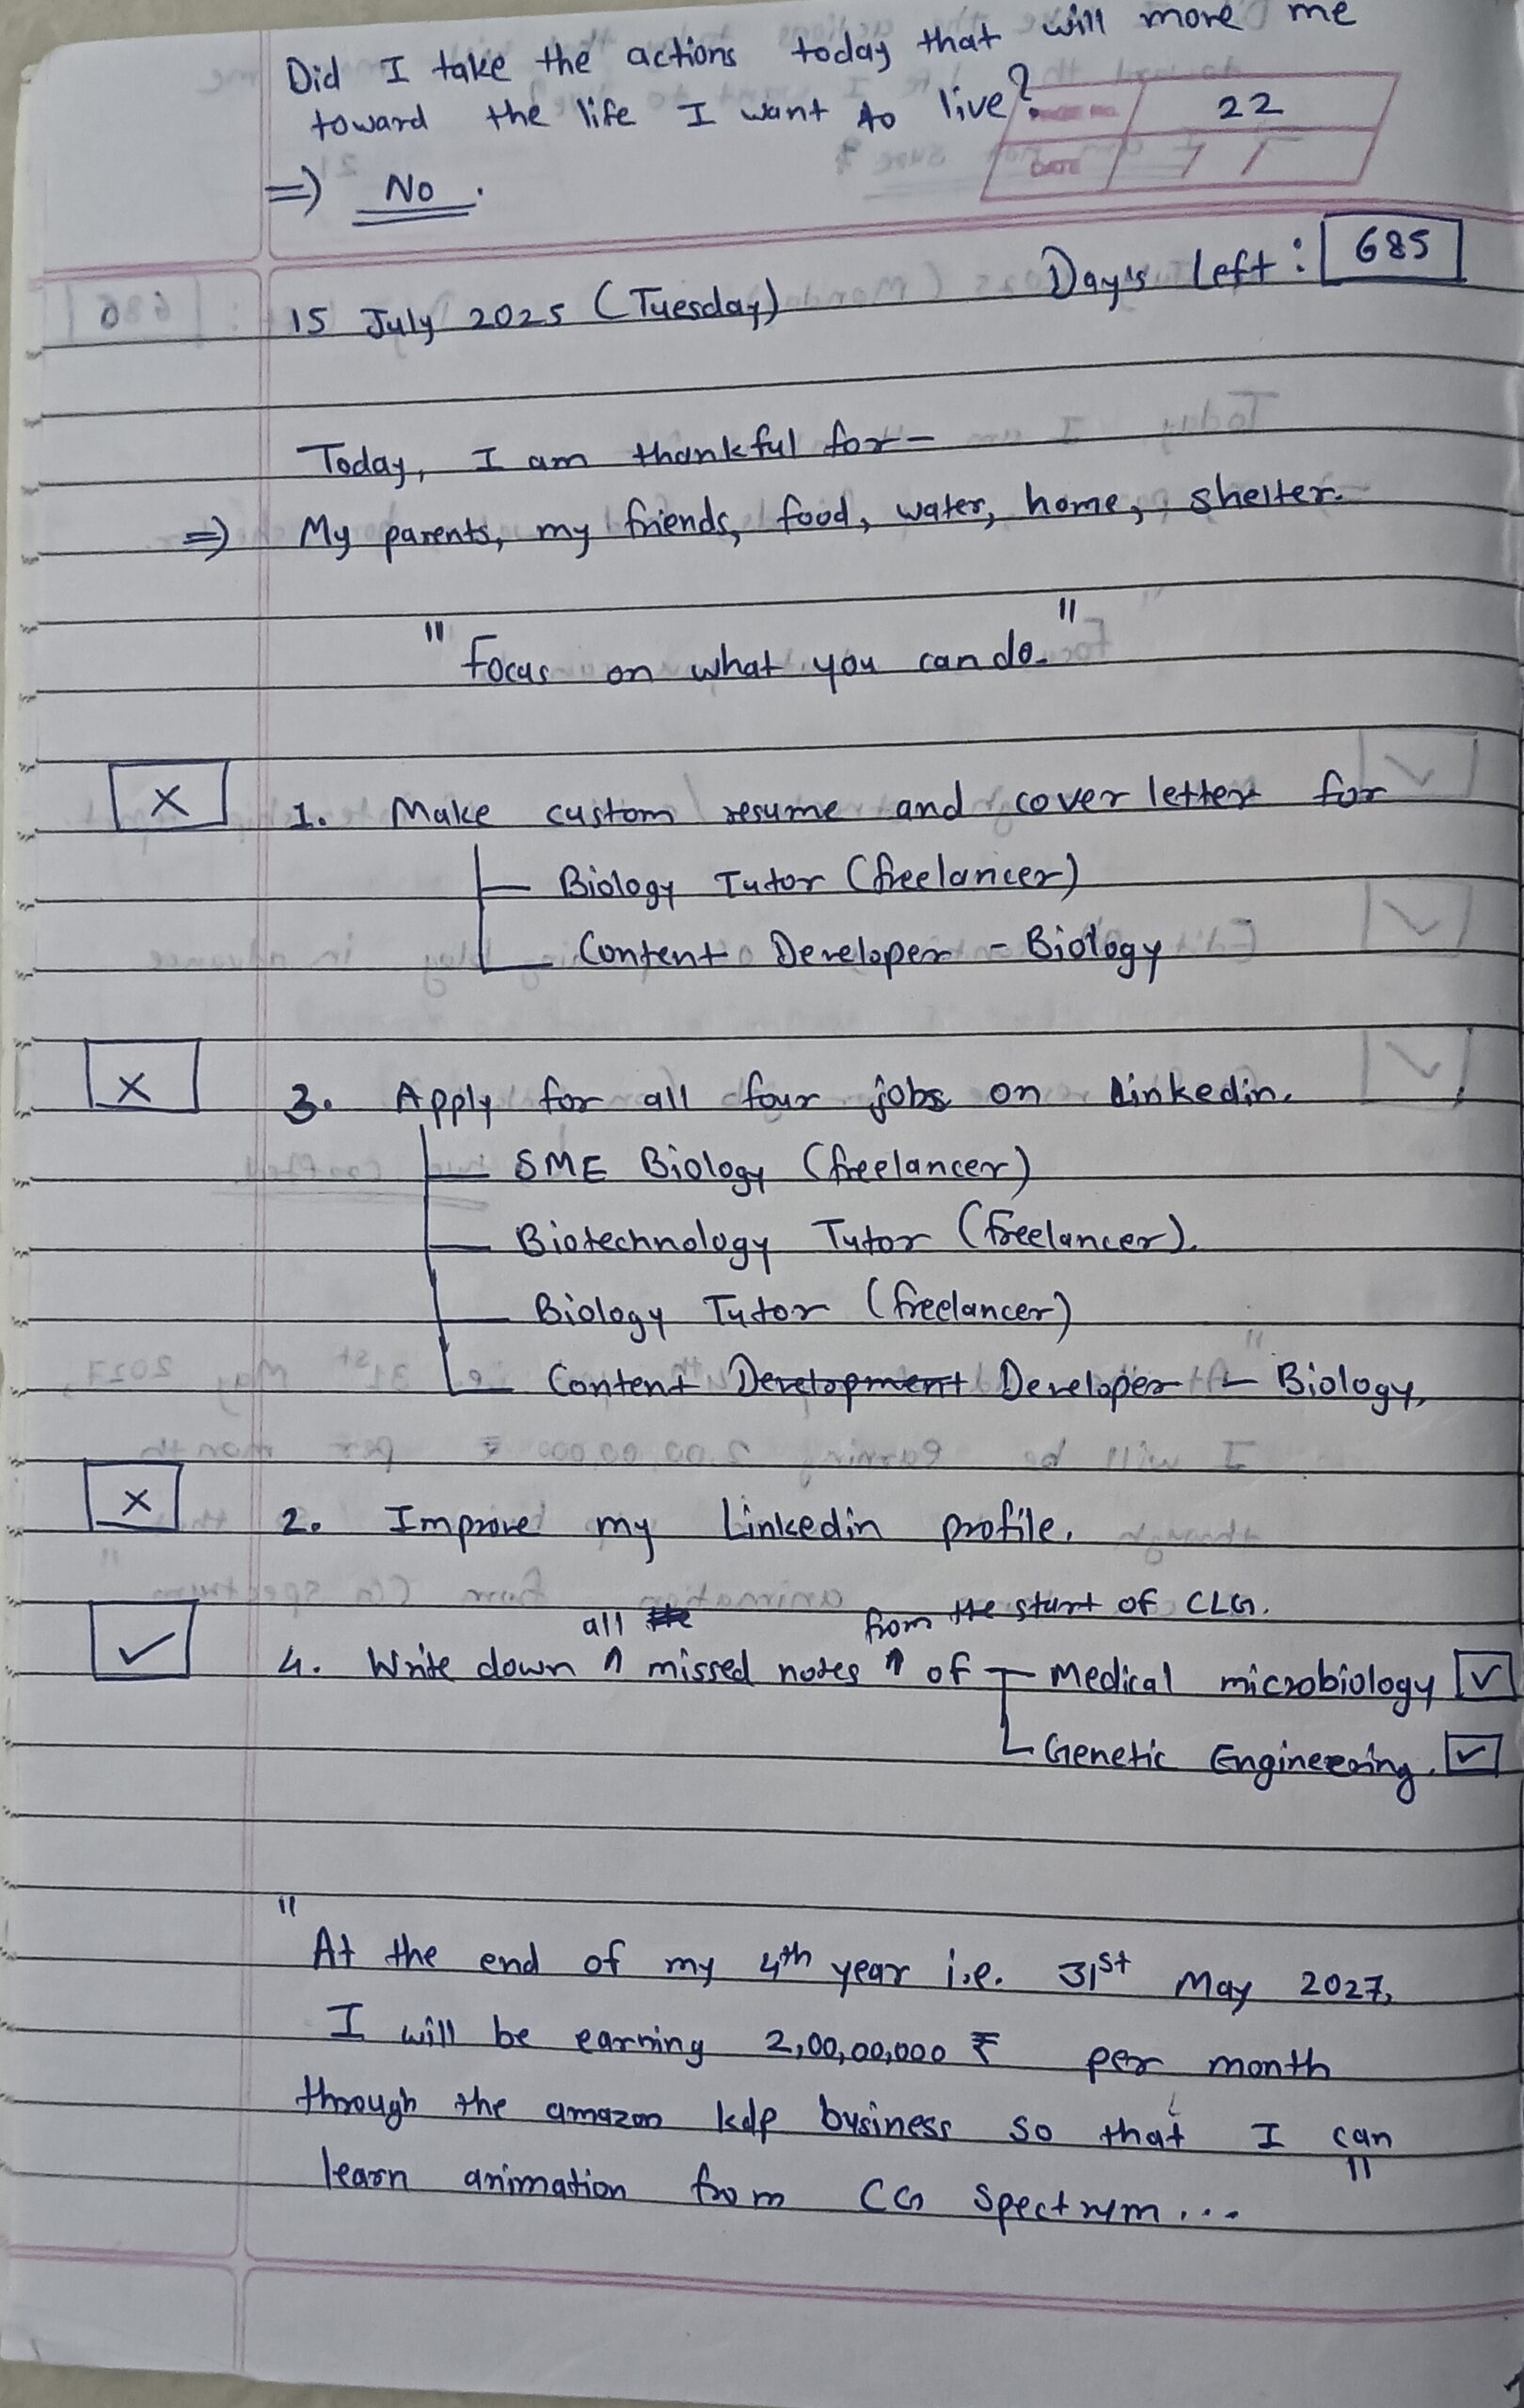 Did I take the actions today that will move me
toward the life I want to live?
PAGE NO. 22
DATE / /
=> No.
Day's Left: 685
15 July 2025 (Tuesday)
Today, I am thankful for-
=> My parents, my friends, food, water, home, shelter.
"Focus on what you can do."
X 1. Make custom resume and cover letter for
Biology Tutor (freelancer)
Content Developer - Biology
X 3. Apply for all four jobs on Linkedin.
SME Biology (freelancer)
Biotechnology Tutor (freelancer).
Biology Tutor (freelancer)
Content Development Developer - Biology,
X 2. Improve my Linkedin profile.
all the from the start of CLG.
✓ 4. Write down ↑ missed notes ↑ of Medical microbiology ✓
Genetic Engineering. ✓
"At the end of my 4th year i.e. 31st May 2027,
I will be earning 2,00,00,000 ₹ per month
through the amazon kdp business so that I can
learn animation from CG Spectrum..."